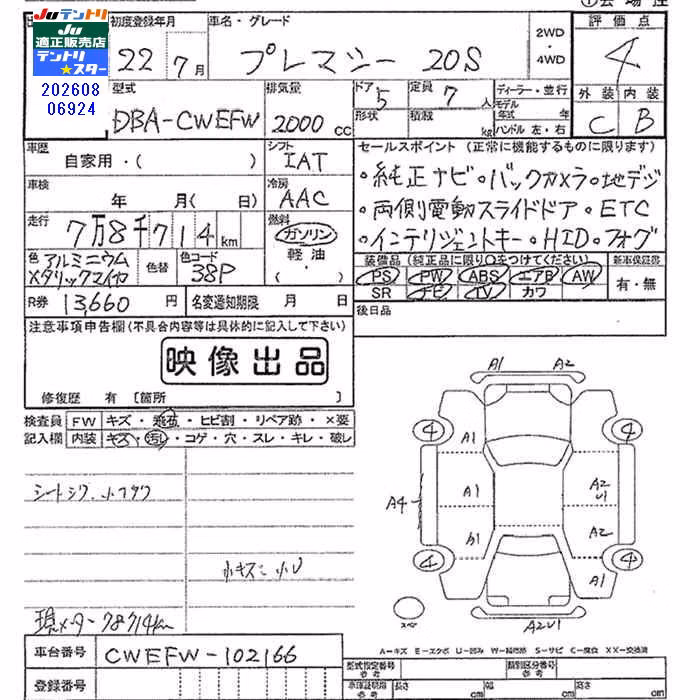 JUテントリ
適正販売店
テントリ
スター
202608
06924
初度登録年月
22 7月
車名・グレード
プレマシー 20S
2WD
・
4WD
評価点
4
型式
DBA-CWEFW
排気量
2000 cc
ドア 5
形状
定員 7 人
積載 kg
ディーラー・並行
モデル
年式 年
ハンドル 左・右
外装 内装
C B
車歴
自家用・( )
シフト
IAT
セールスポイント (正常に機能するものに限ります)
・純正ナビ・バックカメラ・地デジ
・両側電動スライドドア・ETC
・インテリジェントキー・HID・フォグ
車検
年 月( 日)
冷房
AAC
走行
7万8千714km
燃料
ガソリン
軽油
( ・ )
色 アルミニウム
メタリックマイカ
色替
色コード
38P
装備品 (純正品に限り○をつけてください)
新車保証書
PS PW ABS エアB AW
SR ナビ TV カワ
有・無
R券 13,660 円
名変通知期限 月 日
後日品
注意事項申告欄(不具合内容等は具体的に記入して下さい)
映像出品
修復歴 有 [箇所 ]
検査員
記入欄
FW キズ・飛石・ヒビ割・リペア跡・×要
内装 キズ・汚れ・コゲ・穴・スレ・キレ・破レ
A1 A2
4 4
A1
A4 A1 A2
U1
A1 A2
4 4
A1
A2U1
小キズ、小U
現メーター78714km
A-キズ E-エクボ U-凹み W-補修跡 S-サビ C-腐食 XX-交換済
車台番号 CWEFW-102166
登録番号
型式指定番号
参考
類別区分番号
参考
車庫証明用
参考
長さ cm
幅 cm
高さ cm